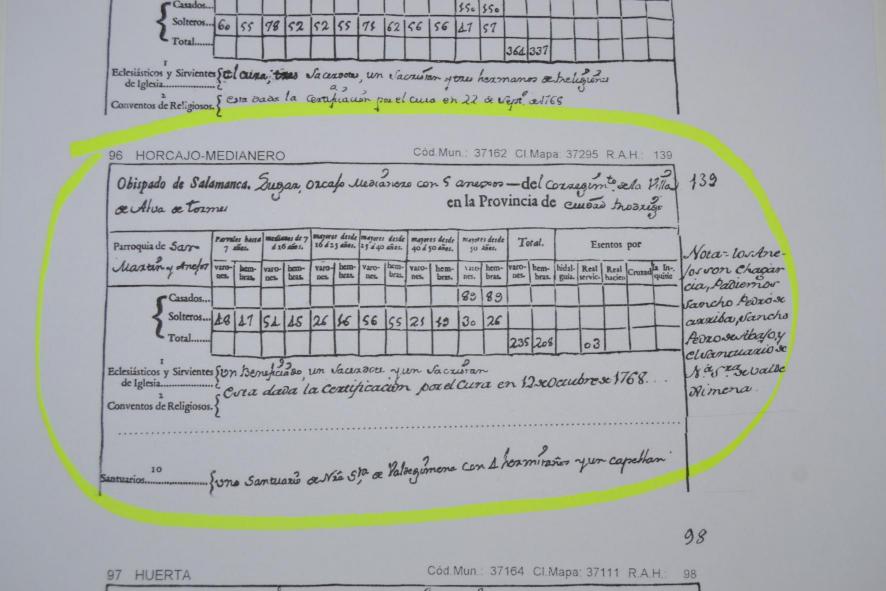 Casados... 350 350
Solteros... 60 55 78 52 52 55 71 62 56 56 47 57
Total...... 364 337
1
Eclesiásticos y Sirvientes { El cura, tres Sacerdotes, un Sacristan y tres hermanos
de Iglesia................
2
Conventos de Religiosos. { esta dada la Certificación por el Cura en 22 de Septe de 1768
96 HORCAJO-MEDIANERO Cód.Mun.: 37162 Cl.Mapa: 37295 R.A.H.: 139
Obispado de Salamanca. Lugar, orcajo Medianero con 5 anexos — del Corregimto. de la Villa 139
de Alva de tormes en la Provincia de Ciudad Rodrigo
Parroquia de San Martín y Anejos
Parvulos hasta 7 años. medianos de 7 á 16 años. mayores desde 16 á 25 años. mayores desde 25 á 40 años. mayores desde 40 á 50 años. mayores desde 50 años. Total. Esentos por
varones. hembras. varones. hembras. varones. hembras. varones. hembras. varones. hembras. varones. hembras. varones. hembras. hidalguia. Real servic. Real hacien. Cruzad la Inquisic
Casados... 89 89
Solteros... 48 47 54 45 26 16 56 55 21 19 30 26
Total...... 235 208 03
1
Eclesiásticos y Sirvientes { Un Beneficiado, un Sacerdote y un Sacristan
de Iglesia................
2
Conventos de Religiosos. { Esta dada la Certificación por el Cura en 12 de Octubre de 1768...
10
Santuarios...................... { uno Santuario de Nra Sra. de Valdegimena con 4 hermitaños y un capellan
Nota- los Ane-
jos son Chagar-
cia, Padiernos
Sancho Pedro de
arriba, Sancho
Pedro de Abajo, y
el Santuario de
Na. Sra. de Valde
Rimena.
98
97 HUERTA Cód.Mun.: 37164 Cl.Mapa: 37111 R.A.H.: 98